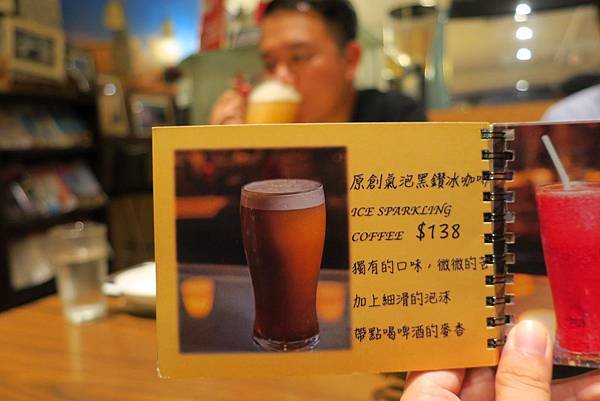 原創氣泡黑鑽冰咖啡
ICE SPARKLING
COFFEE $138
獨有的口味，微微的苦
加上細滑的泡沫
帶點喝啤酒的麥香